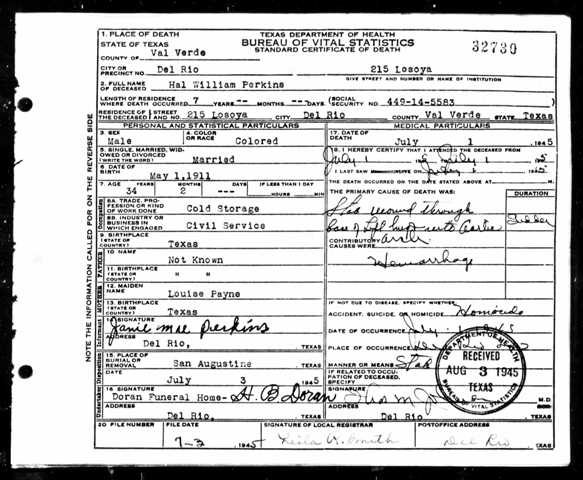 TEXAS DEPARTMENT OF HEALTH
BUREAU OF VITAL STATISTICS
STANDARD CERTIFICATE OF DEATH
32730
1. PLACE OF DEATH
STATE OF TEXAS
COUNTY OF Val Verde
CITY OR PRECINCT NO. Del Rio 215 Losoya
GIVE STREET AND NUMBER OR NAME OF INSTITUTION
2. FULL NAME OF DECEASED Hal William Perkins
LENGTH OF RESIDENCE WHERE DEATH OCCURRED 7 YEARS -- MONTHS --- DAYS (SOCIAL SECURITY NO. 449-14-5583
RESIDENCE OF THE DECEASED STREET AND NO. 215 Losoya CITY Del Rio COUNTY Val Verde STATE Texas
PERSONAL AND STATISTICAL PARTICULARS
3. SEX Male
4. COLOR OR RACE Colored
5. SINGLE, MARRIED, WIDOWED OR DIVORCED (WRITE THE WORD) Married
6. DATE OF BIRTH May 1, 1911
7. AGE YEARS 34 MONTHS 2 DAYS --- IF LESS THAN 1 DAY HOURS MIN
8A. TRADE, PROFESSION OR KIND OF WORK DONE Cold Storage
8B. INDUSTRY OR BUSINESS IN WHICH ENGAGED Civil Service
9. BIRTHPLACE (STATE OR COUNTRY) Texas
10. NAME Not Known
11. BIRTHPLACE (STATE OR COUNTRY) " "
12. MAIDEN NAME Louise Payne
13. BIRTHPLACE (STATE OR COUNTRY) Texas
14. SIGNATURE Janie Mae Perkins
ADDRESS Del Rio, TEXAS
15. PLACE OF BURIAL OR REMOVAL San Augustine TEXAS
DATE July 3 1945
16. SIGNATURE Doran Funeral Home- H. B. Doran
ADDRESS Del Rio, TEXAS
MEDICAL PARTICULARS
17. DATE OF DEATH July 1 1945
18. I HEREBY CERTIFY THAT I ATTENDED THE DECEASED FROM
July 1 July 1
I LAST SAW ALIVE ON July 1 1945
THE DEATH OCCURRED ON THE DATE STATED ABOVE AT M.
THE PRIMARY CAUSE OF DEATH WAS: DURATION
Stab wound through
base of left lung into
CONTRIBUTORY CAUSES WERE:
Hemorrhage
IF NOT DUE TO DISEASE, SPECIFY WHETHER
ACCIDENT, SUICIDE, OR HOMICIDE Homicide
DATE OF OCCURRENCE July 1 1945
PLACE OF OCCURRENCE Del Rio
MANNER OR MEANS Stab
IF RELATED TO OCCUPATION OF DECEASED, SPECIFY
SIGNATURE M.D.
ADDRESS Del Rio TEXAS
DEPARTMENT OF HEALTH
RECEIVED
AUG 3 1945
TEXAS
BUREAU OF VITAL STATISTICS
20 FILE NUMBER
FILE DATE 7-3 1945
SIGNATURE OF LOCAL REGISTRAR Smith
POSTOFFICE ADDRESS Del Rio
NOTE THE INFORMATION CALLED FOR ON THE REVERSE SIDE